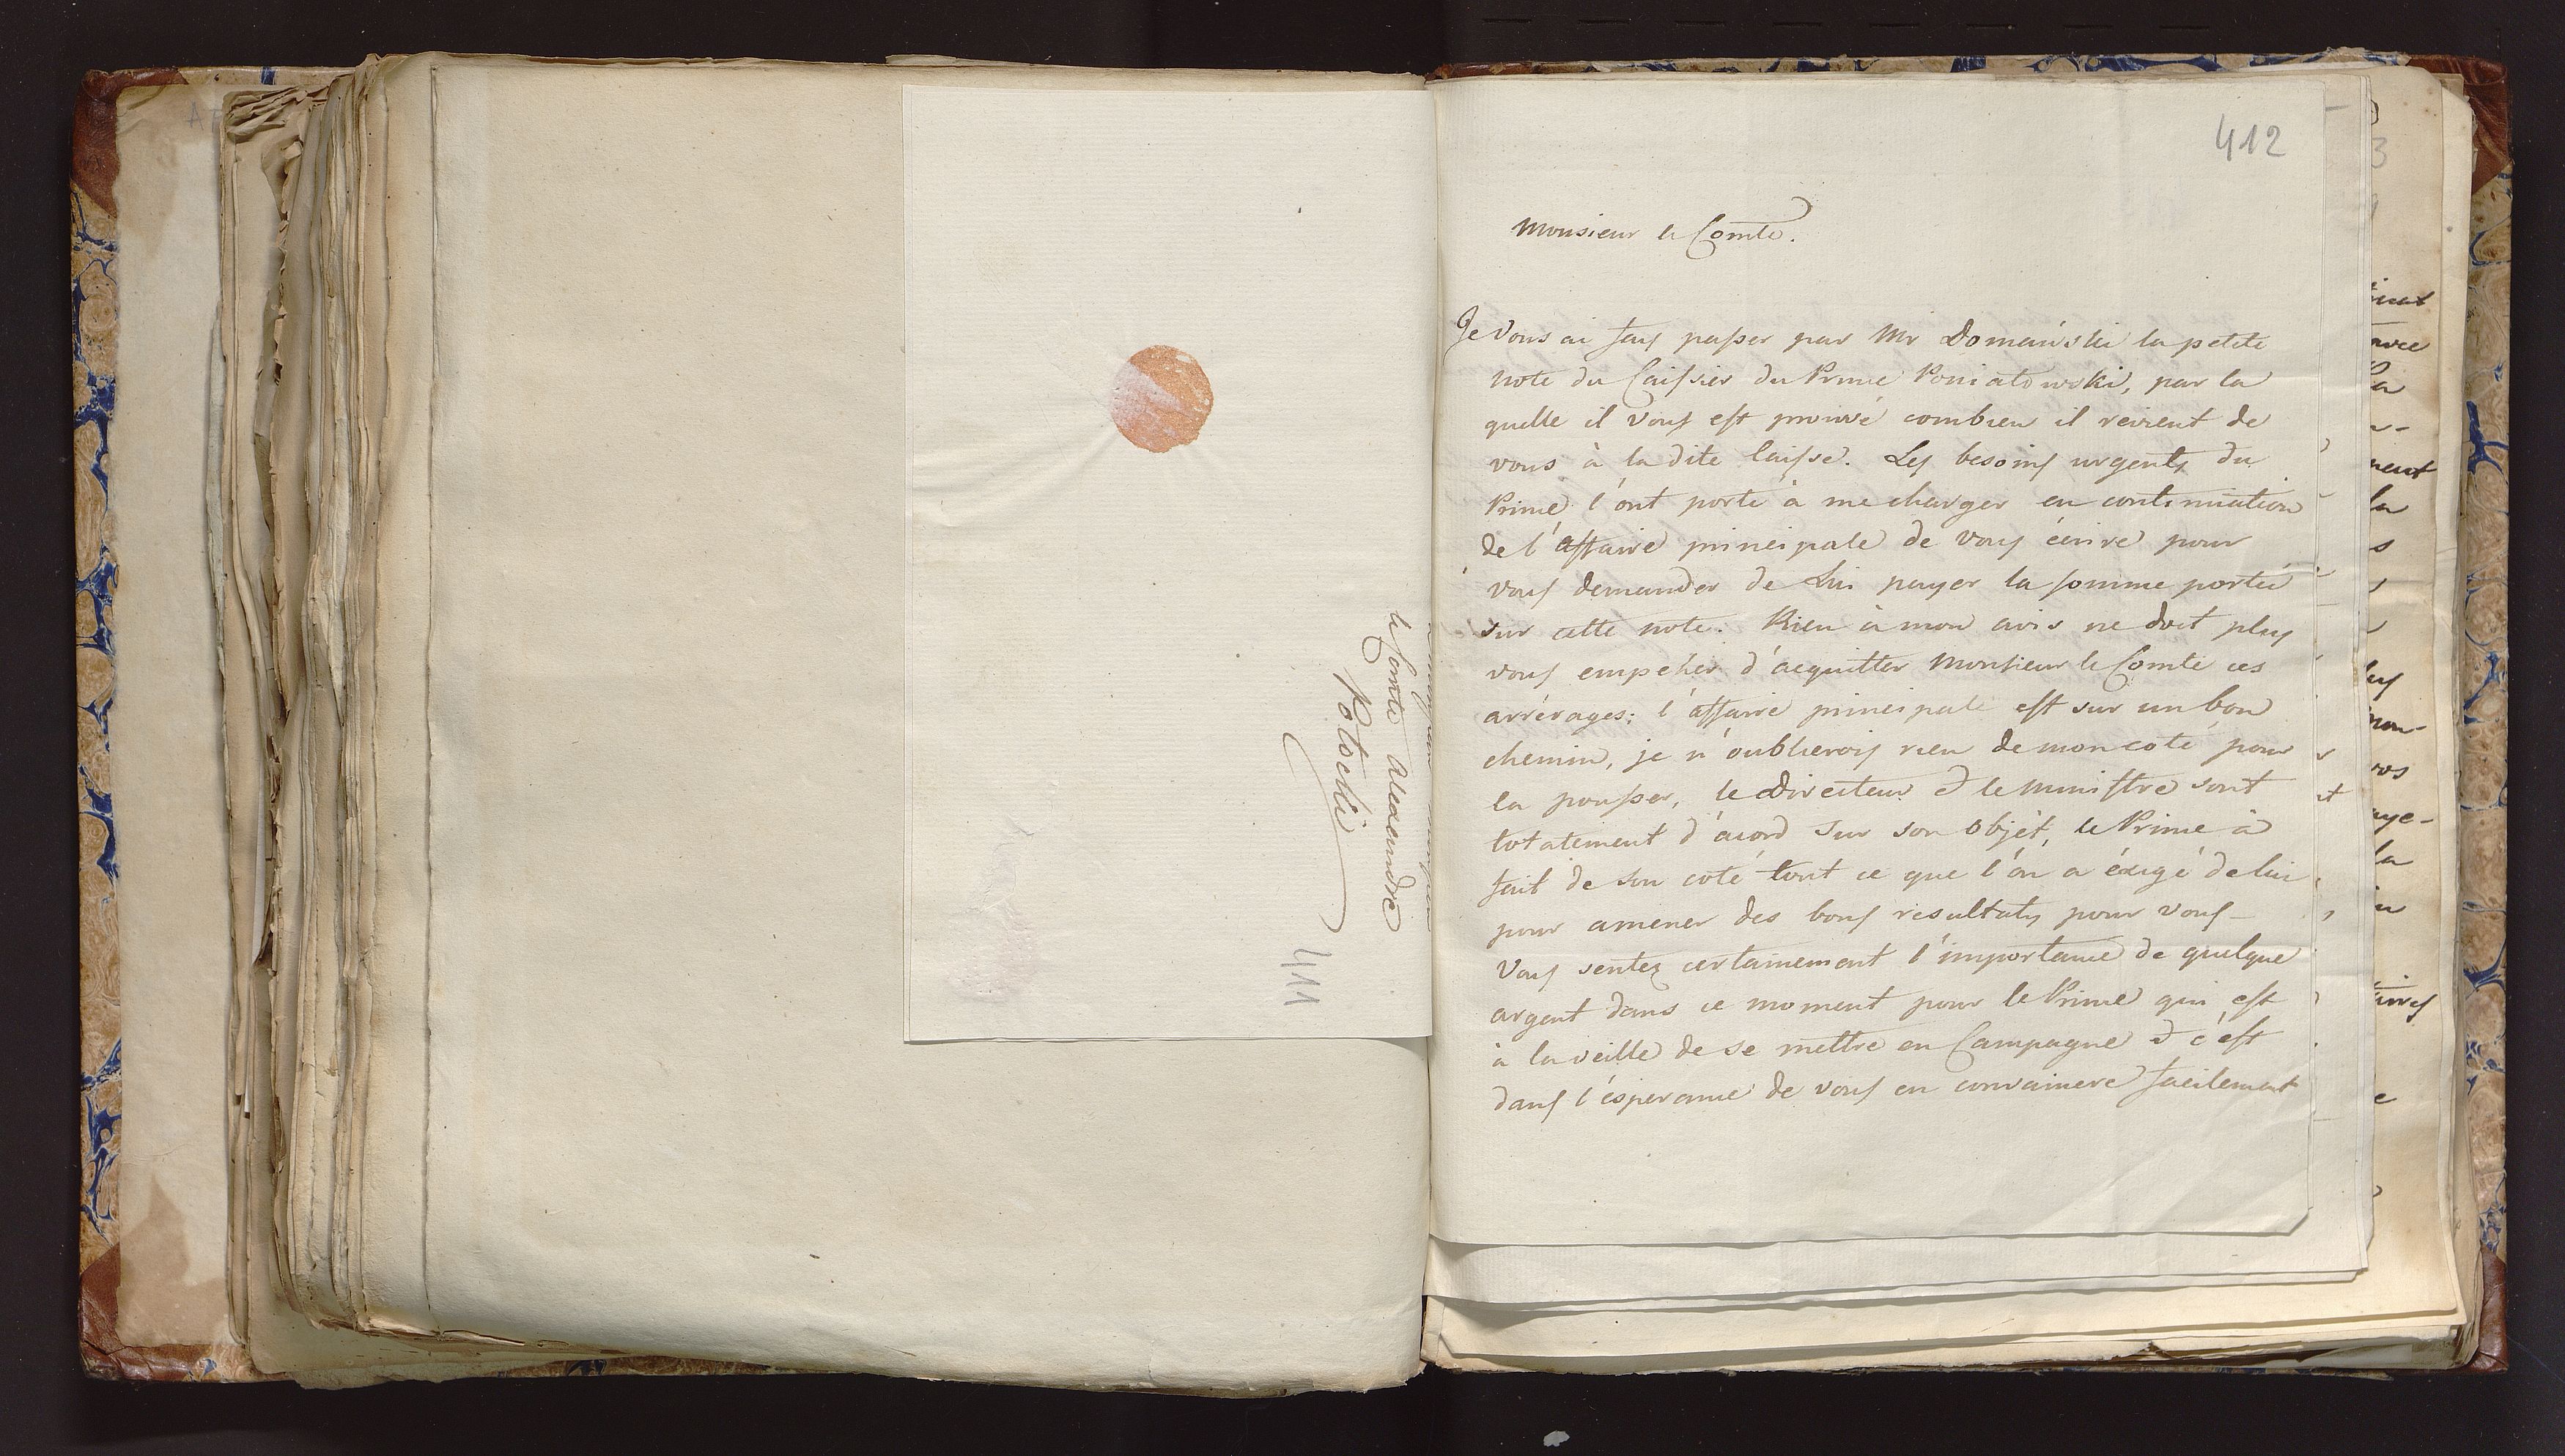 le Comte Alexandre
Potocki
411
412
Monsieur le Comte.
Je Vous ai fais passer par Mr Domański la petite
note du Caissier du Prince Poniatowski, par la
quelle il vous est prouvé combien il revient de
vous à la dite Caisse. Les besoins urgents du
Prince l'ont porté à me charger en continuation
de l'affaire principale de vous écrire pour
vous demander de Lui payer la somme portée
sur cette note. Rien à mon avis ne doit plus
vous empêher d'acquitter Monsieur le Comte ces
arrérages; l'affaire principale est sur un bon
chemin, je n'oublierois rien de mon coté pour
la pousser, le Directeur & le Ministre sont
totalement d'acord sur son objèt, le Prince à
fait de son coté tout ce que l'on a éxigé de lui
pour amener des bons resultats pour vous –
Vous sentez certainement l'importance de quelque
argent dans ce moment pour le Prince qui est
à la veille de se mettre en Campagne & c'est
dans l'ésperance de vous en convaincre facilement